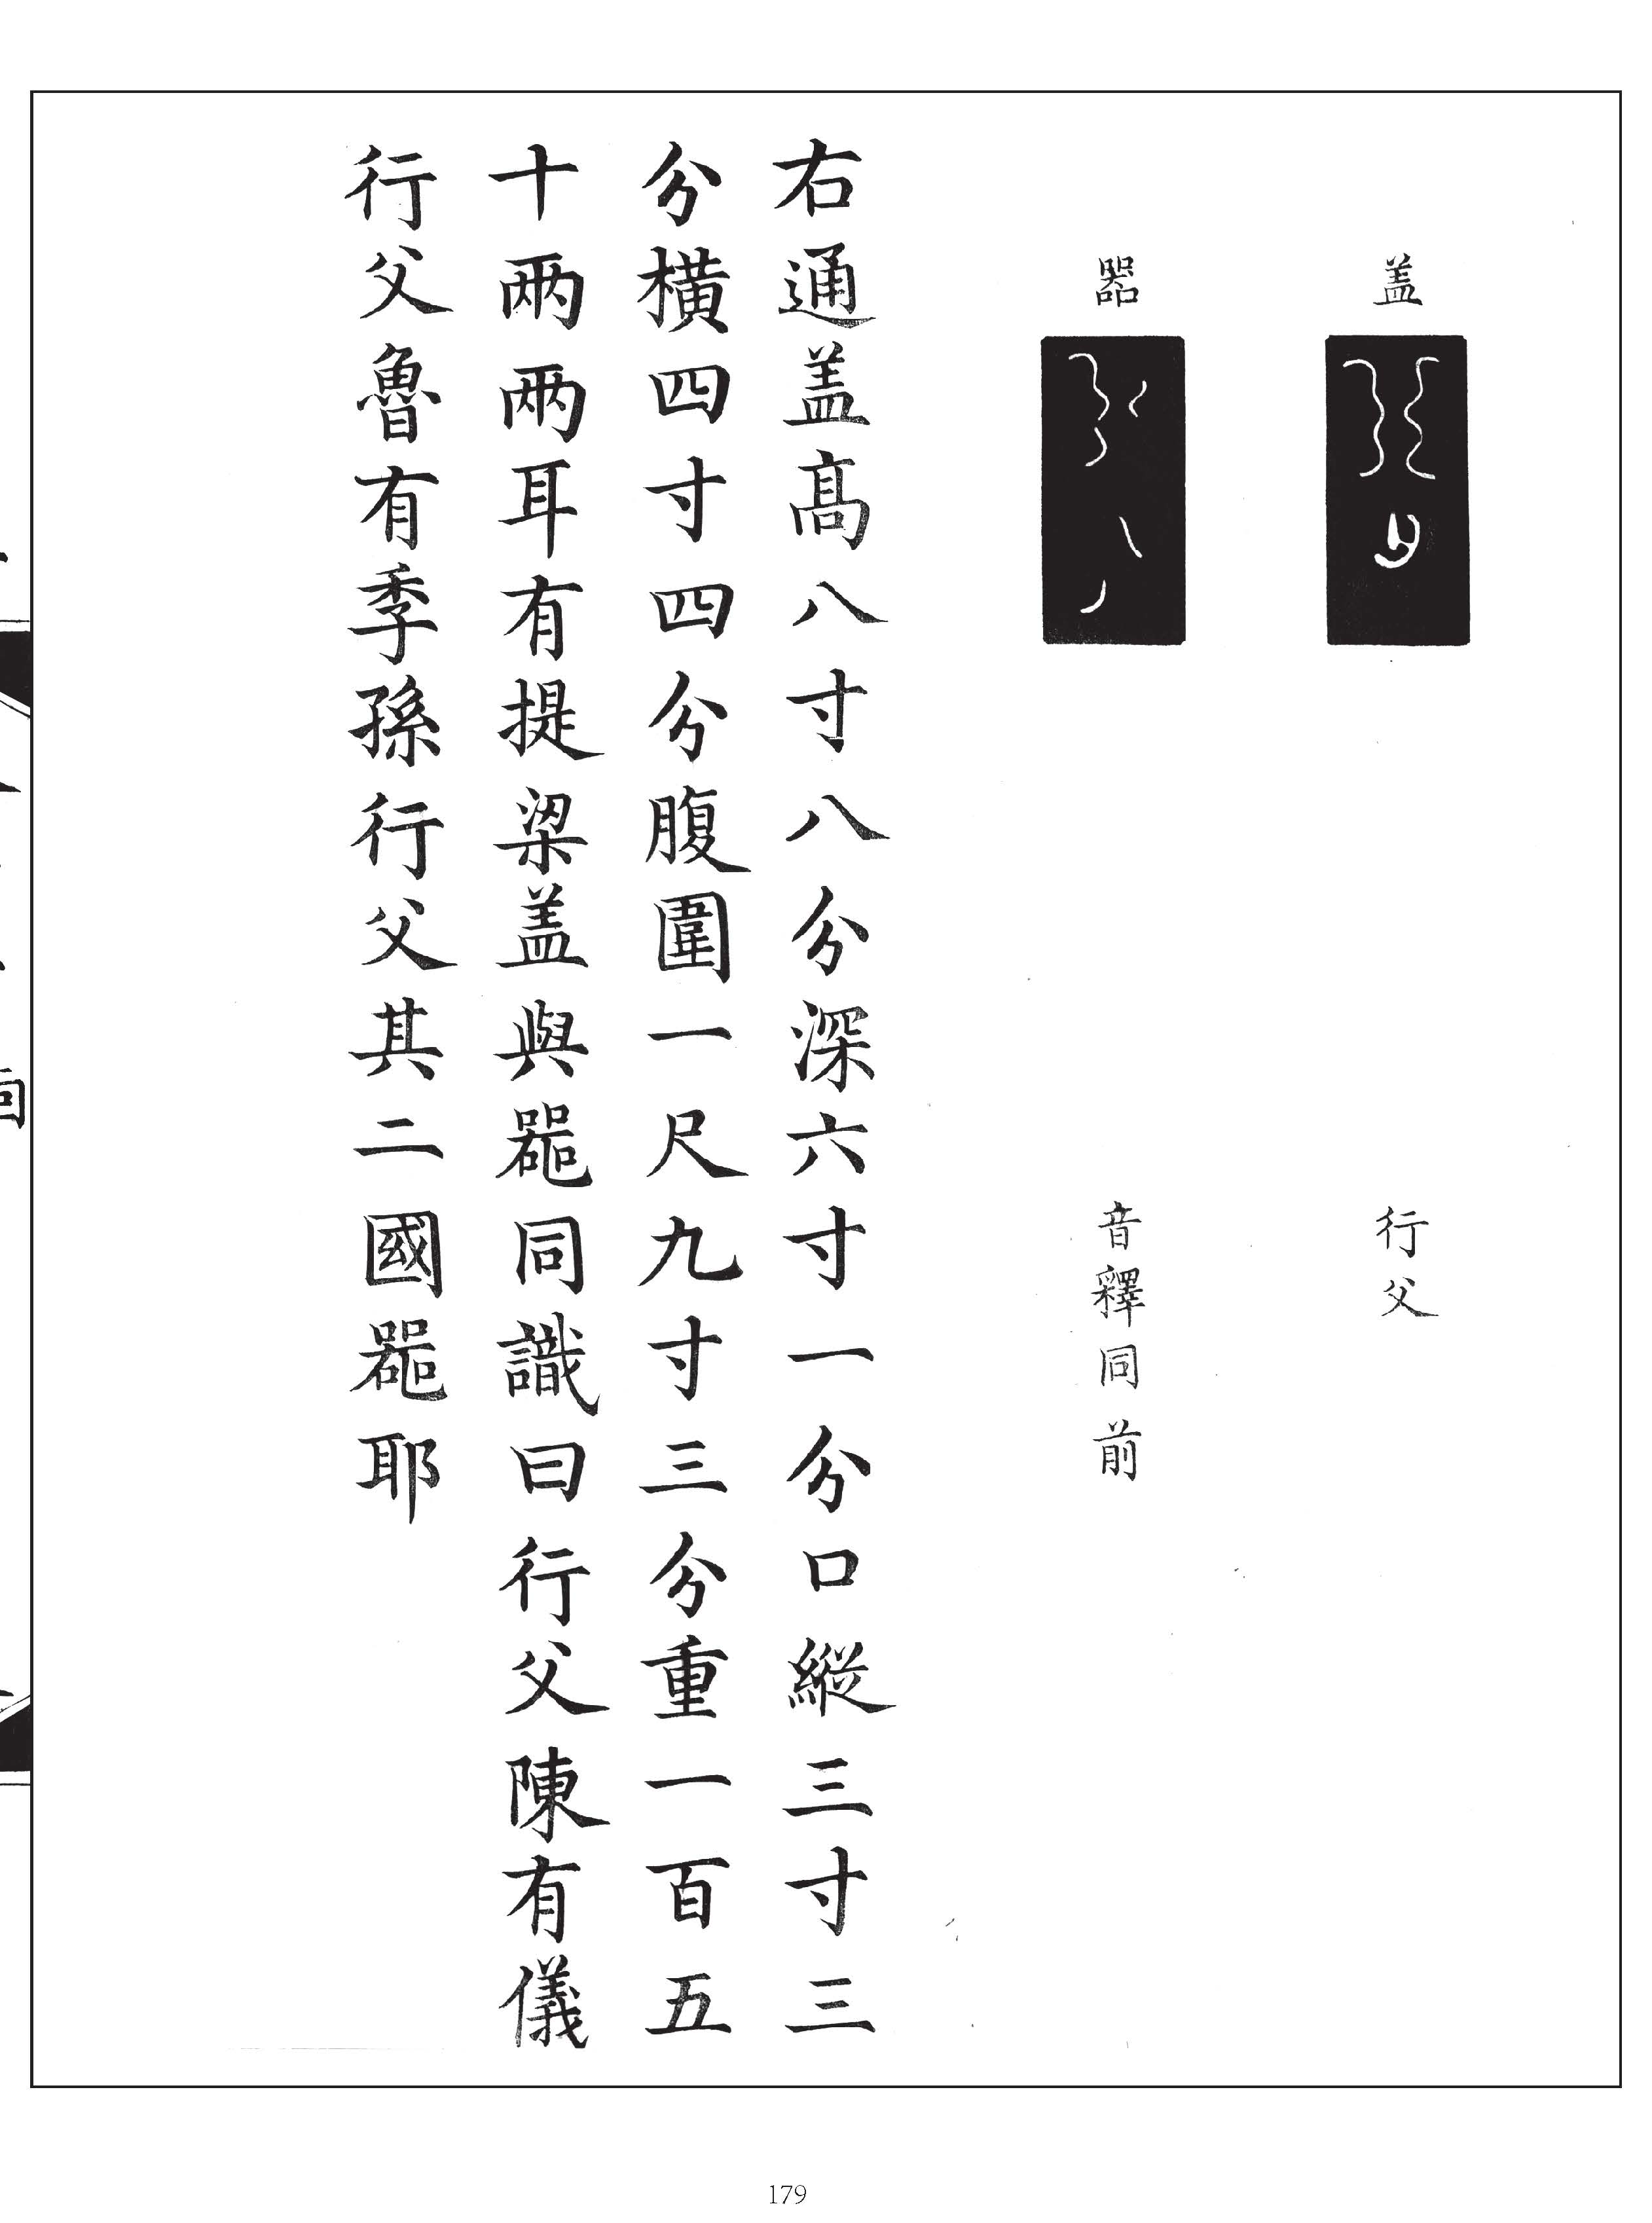 蓋
行父
器
音釋同前
右通盖高八寸八分深六寸一分口縱三寸三
分橫四寸四分腹圍一尺九寸三分重一百五
十兩兩耳有提梁盖與器同識曰行父陳有儀
行父魯有季孫行父其二國器耶
179